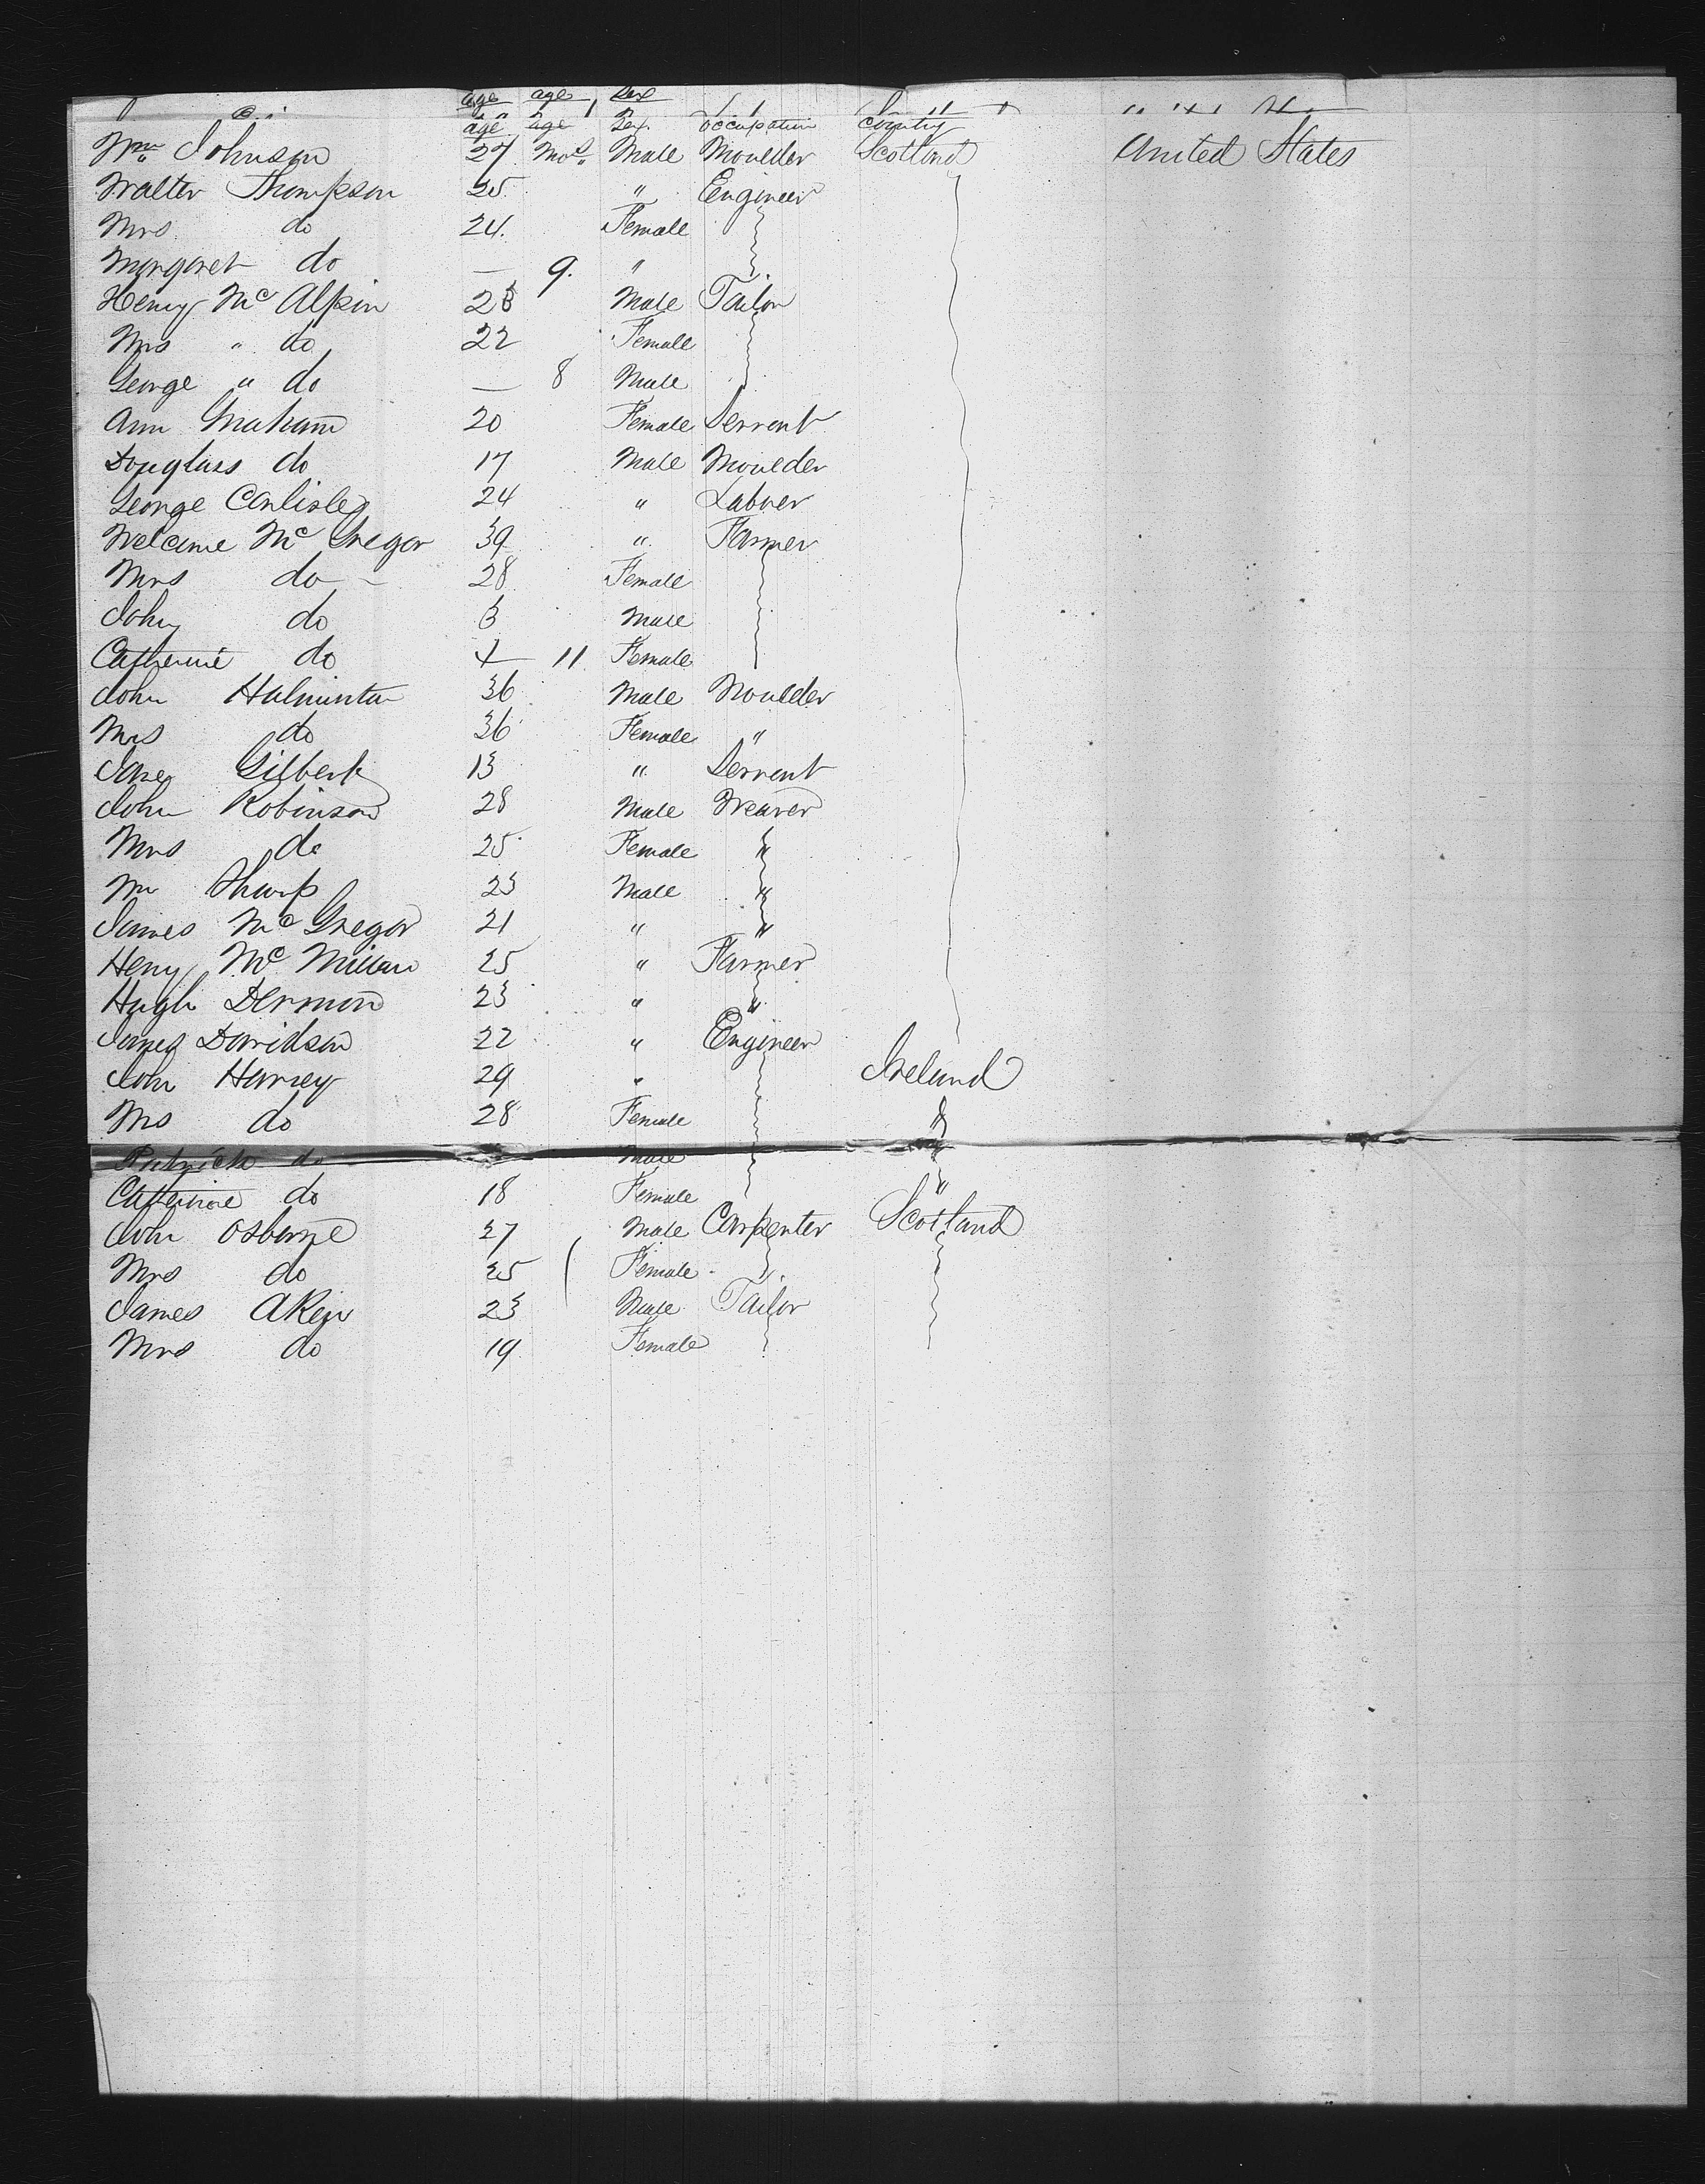 age age Sex
age age Sex occupation country
Wm Johnson 27 Mos Male Moulder Scotland United States
Walter Thompson 25 " Engineer
Mrs do 24 Female
Margaret do — 9 "
Henry Mc Alpin 23 Male Tailor
Mrs " do 22 Female
George " do — 8 Male
Ann Graham 20 Female Servent
Douglass do 17 Male Moulder
George Carlisle 24 " Labner
Welcame Mc Gregor 39 " Farmer
Mrs do 28 Female
John do 3 Male
Catherine do — 11 Female
John 36 Male Moulder
Mrs do 36 Female "
Jane Gilbert 13 " Servent
John Robinson 28 Male Weaver
Mrs do 25 Female "
Wm Sharp 23 Male "
James Mc Gregor 21 " "
Henry Mc Millan 25 " Farmer
Hugh Dermon 23 " "
James Davidson 22 " Engineer
John Harvey 29 " Ireland
Mrs do 28 Female "
Patrick do Male "
Catherine do 18 Female "
John Osborne 27 Male Carpenter Scotland
Mrs do 25 Female
James Aken 23 Male Tailor
Mrs do 19 Female